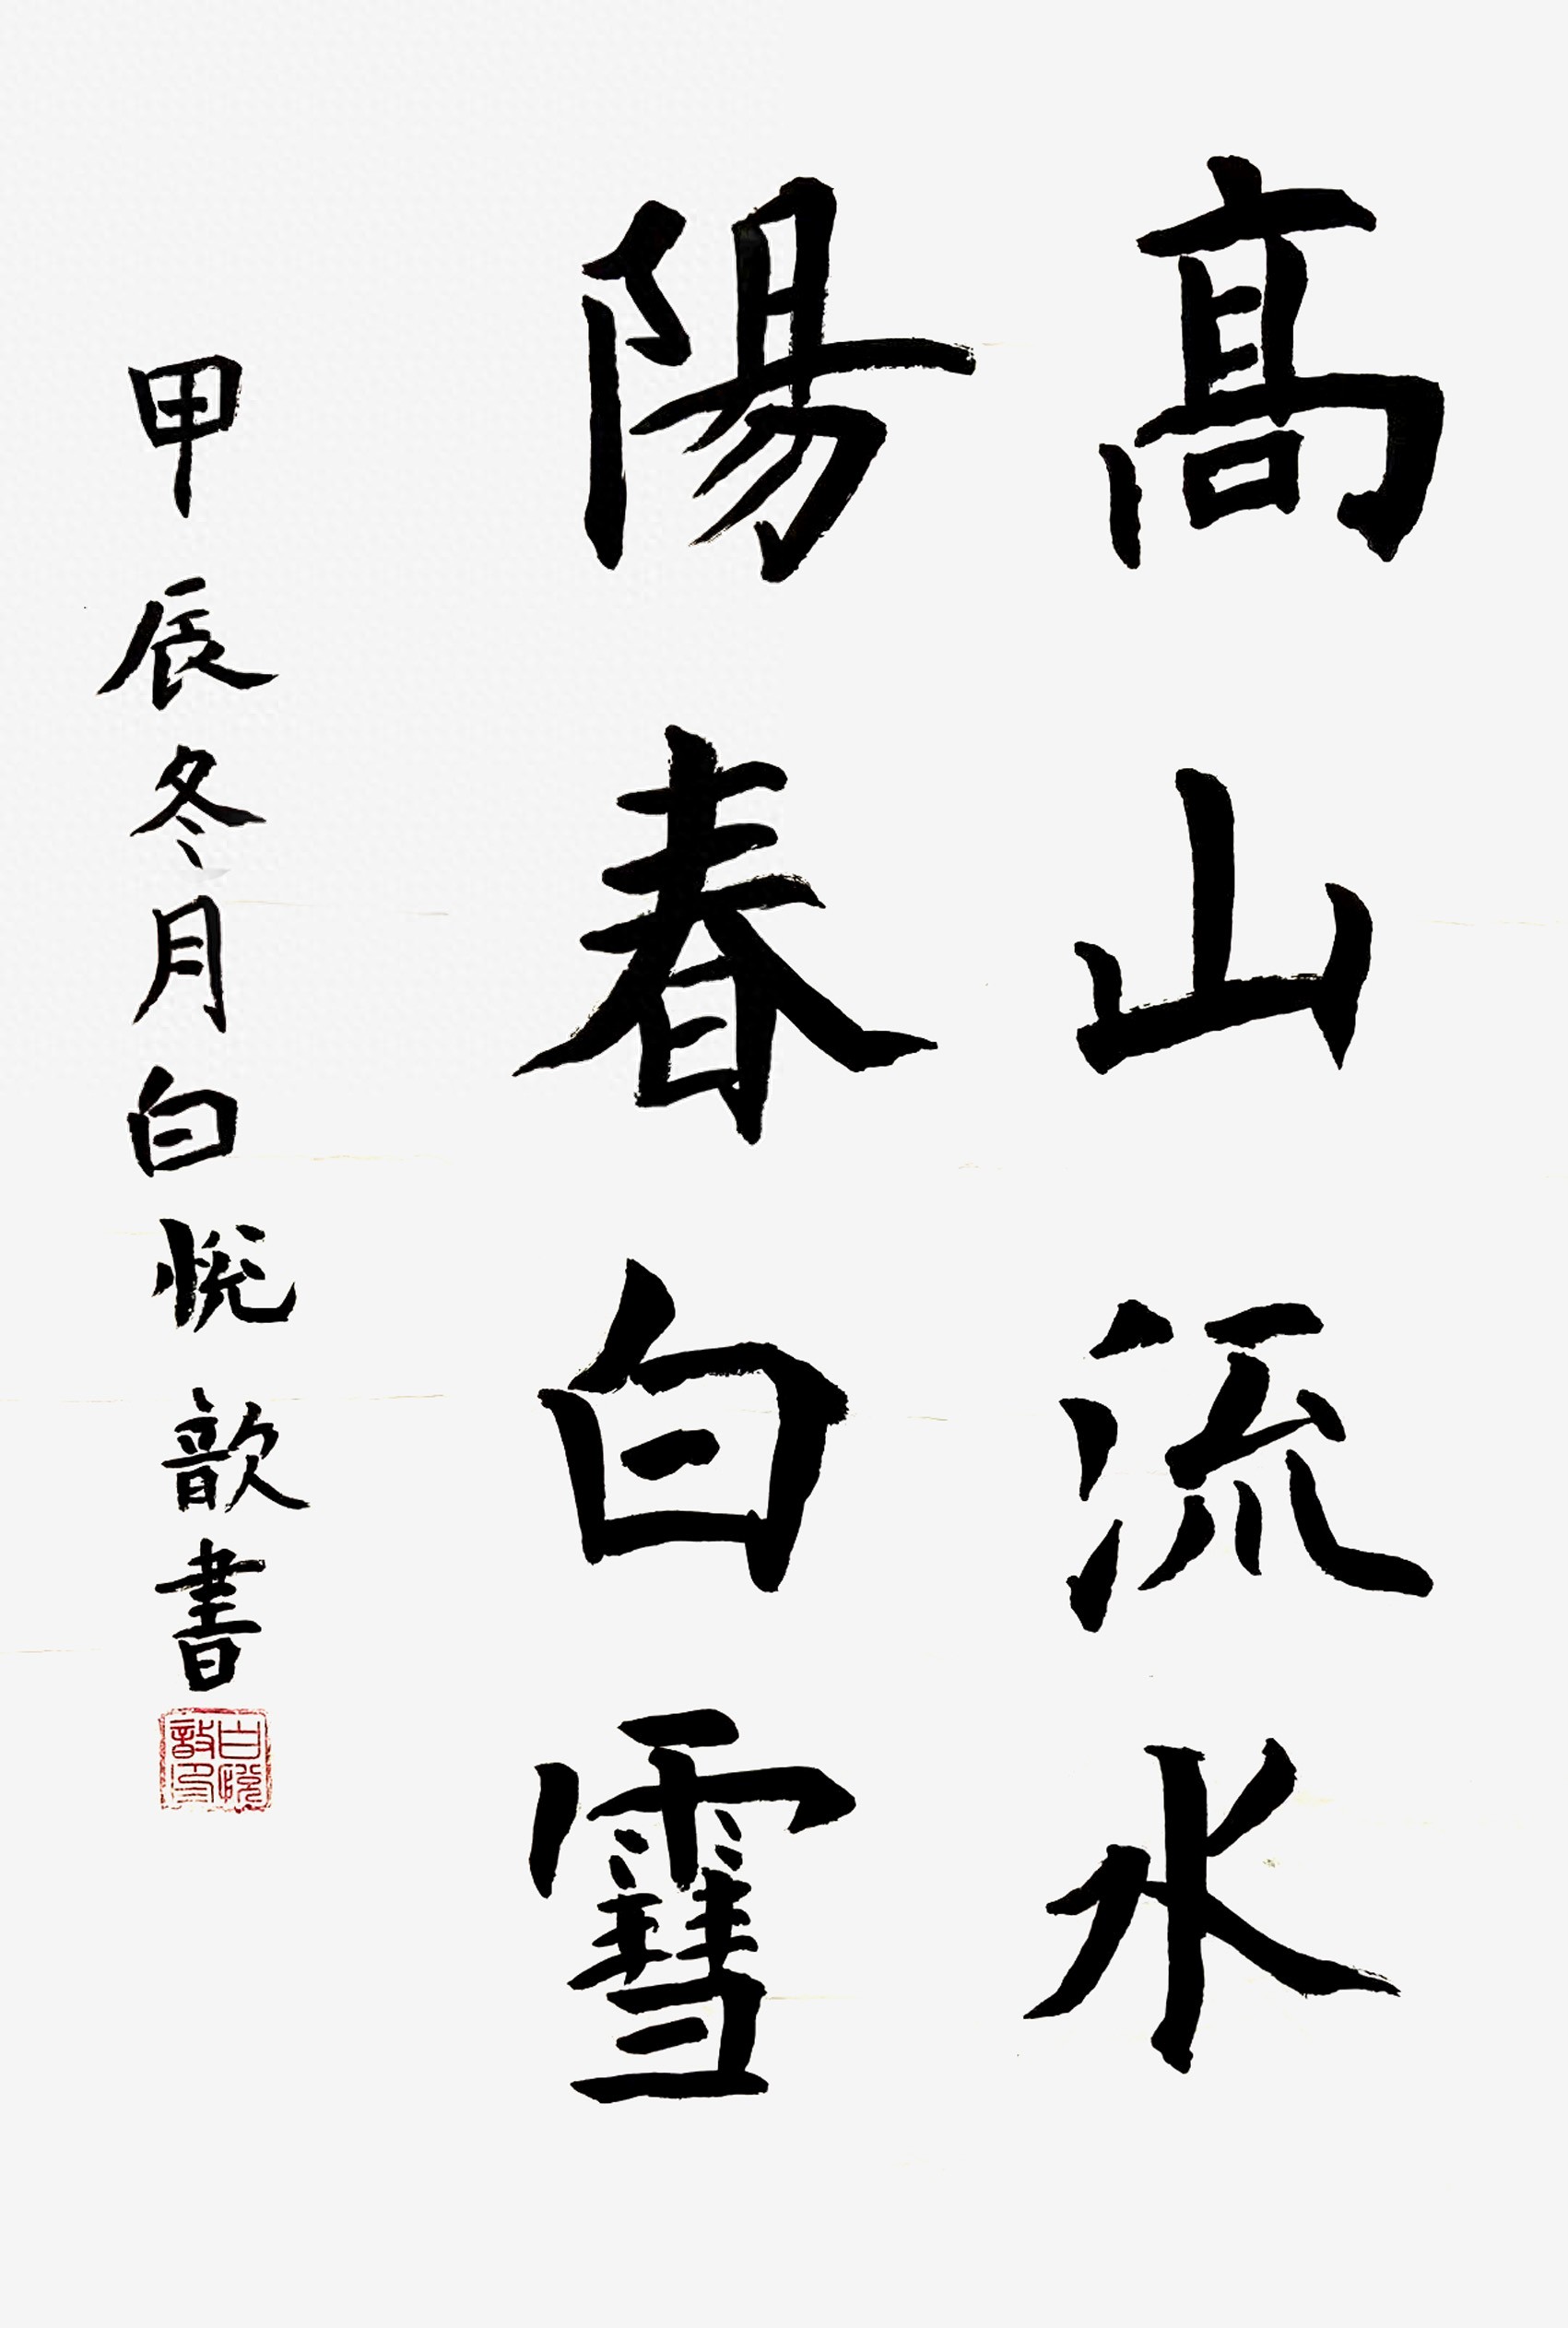 髙山流水
陽春白雪
甲辰冬月白悦歆書
白悦歆印